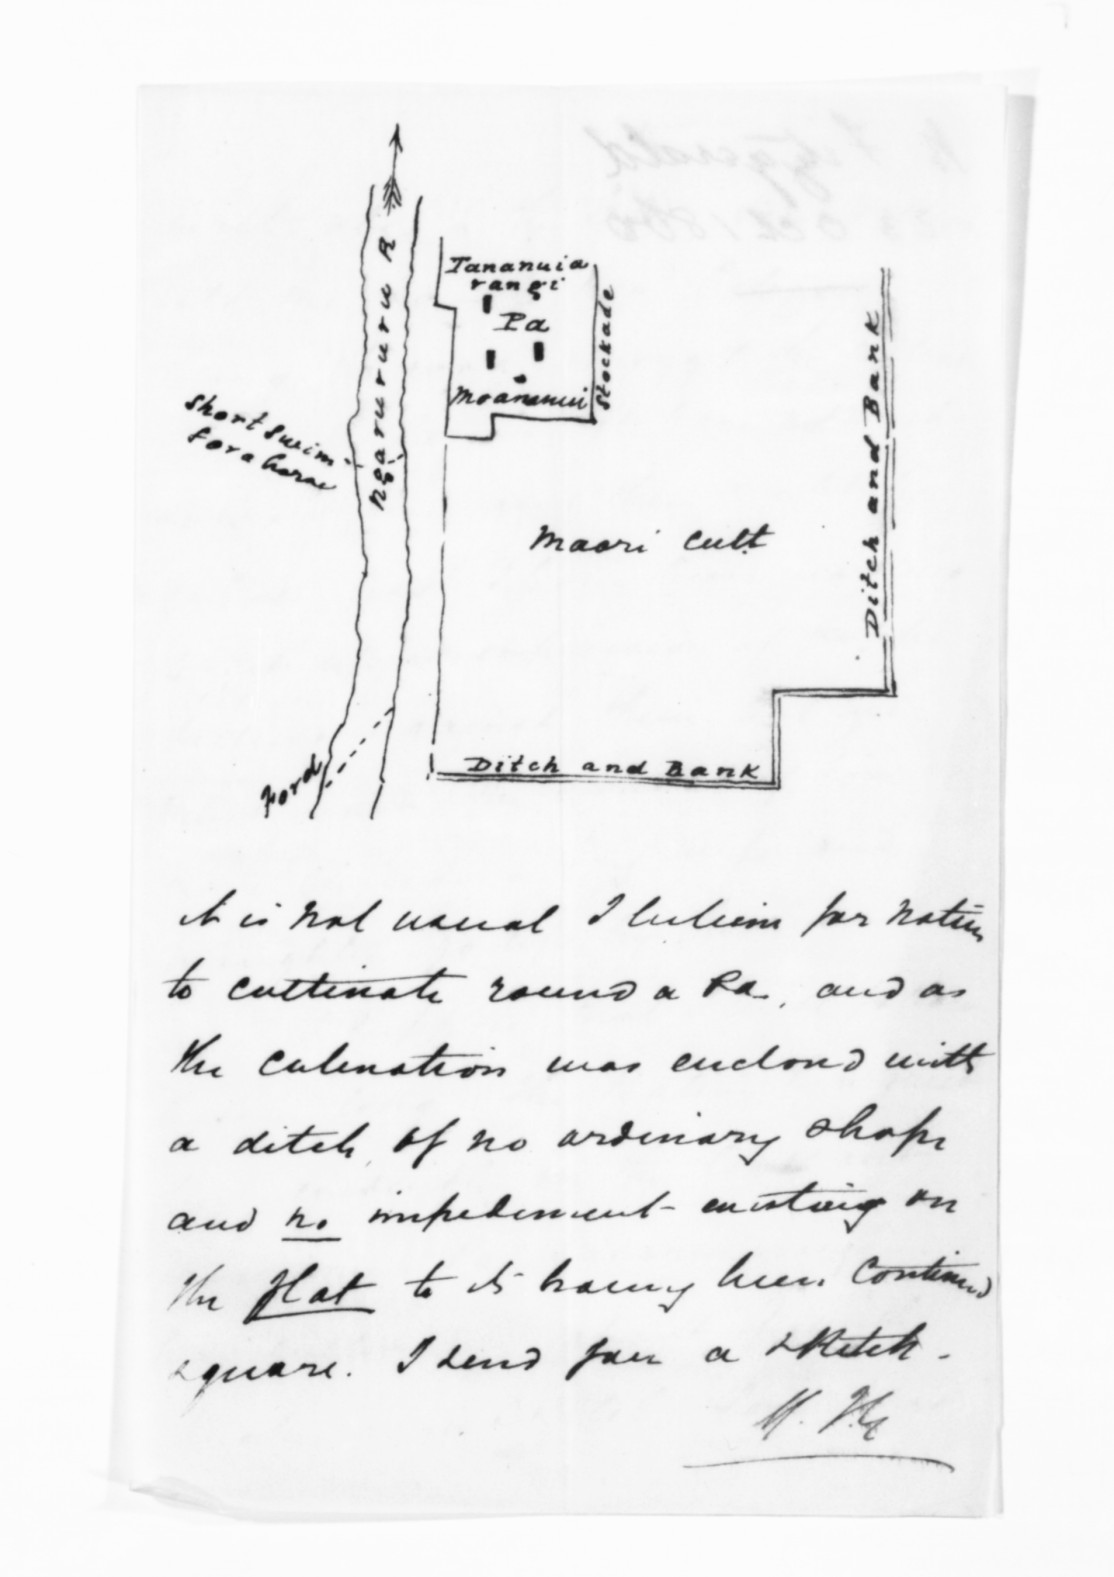 Tananuia
rangi
Pa
Moananui
Stockade
Ngarururu R
Short swim
for a horse
Ford
Maori cult.
Ditch and Bank
Ditch and Bank
it is not usual I believe for natives
to cultivate round a Pa, and as
the cultivation was enclosed with
a ditch, of no ordinary shape
and no impediment existing on
the flat to its having been continued
square. I send you a sketch.